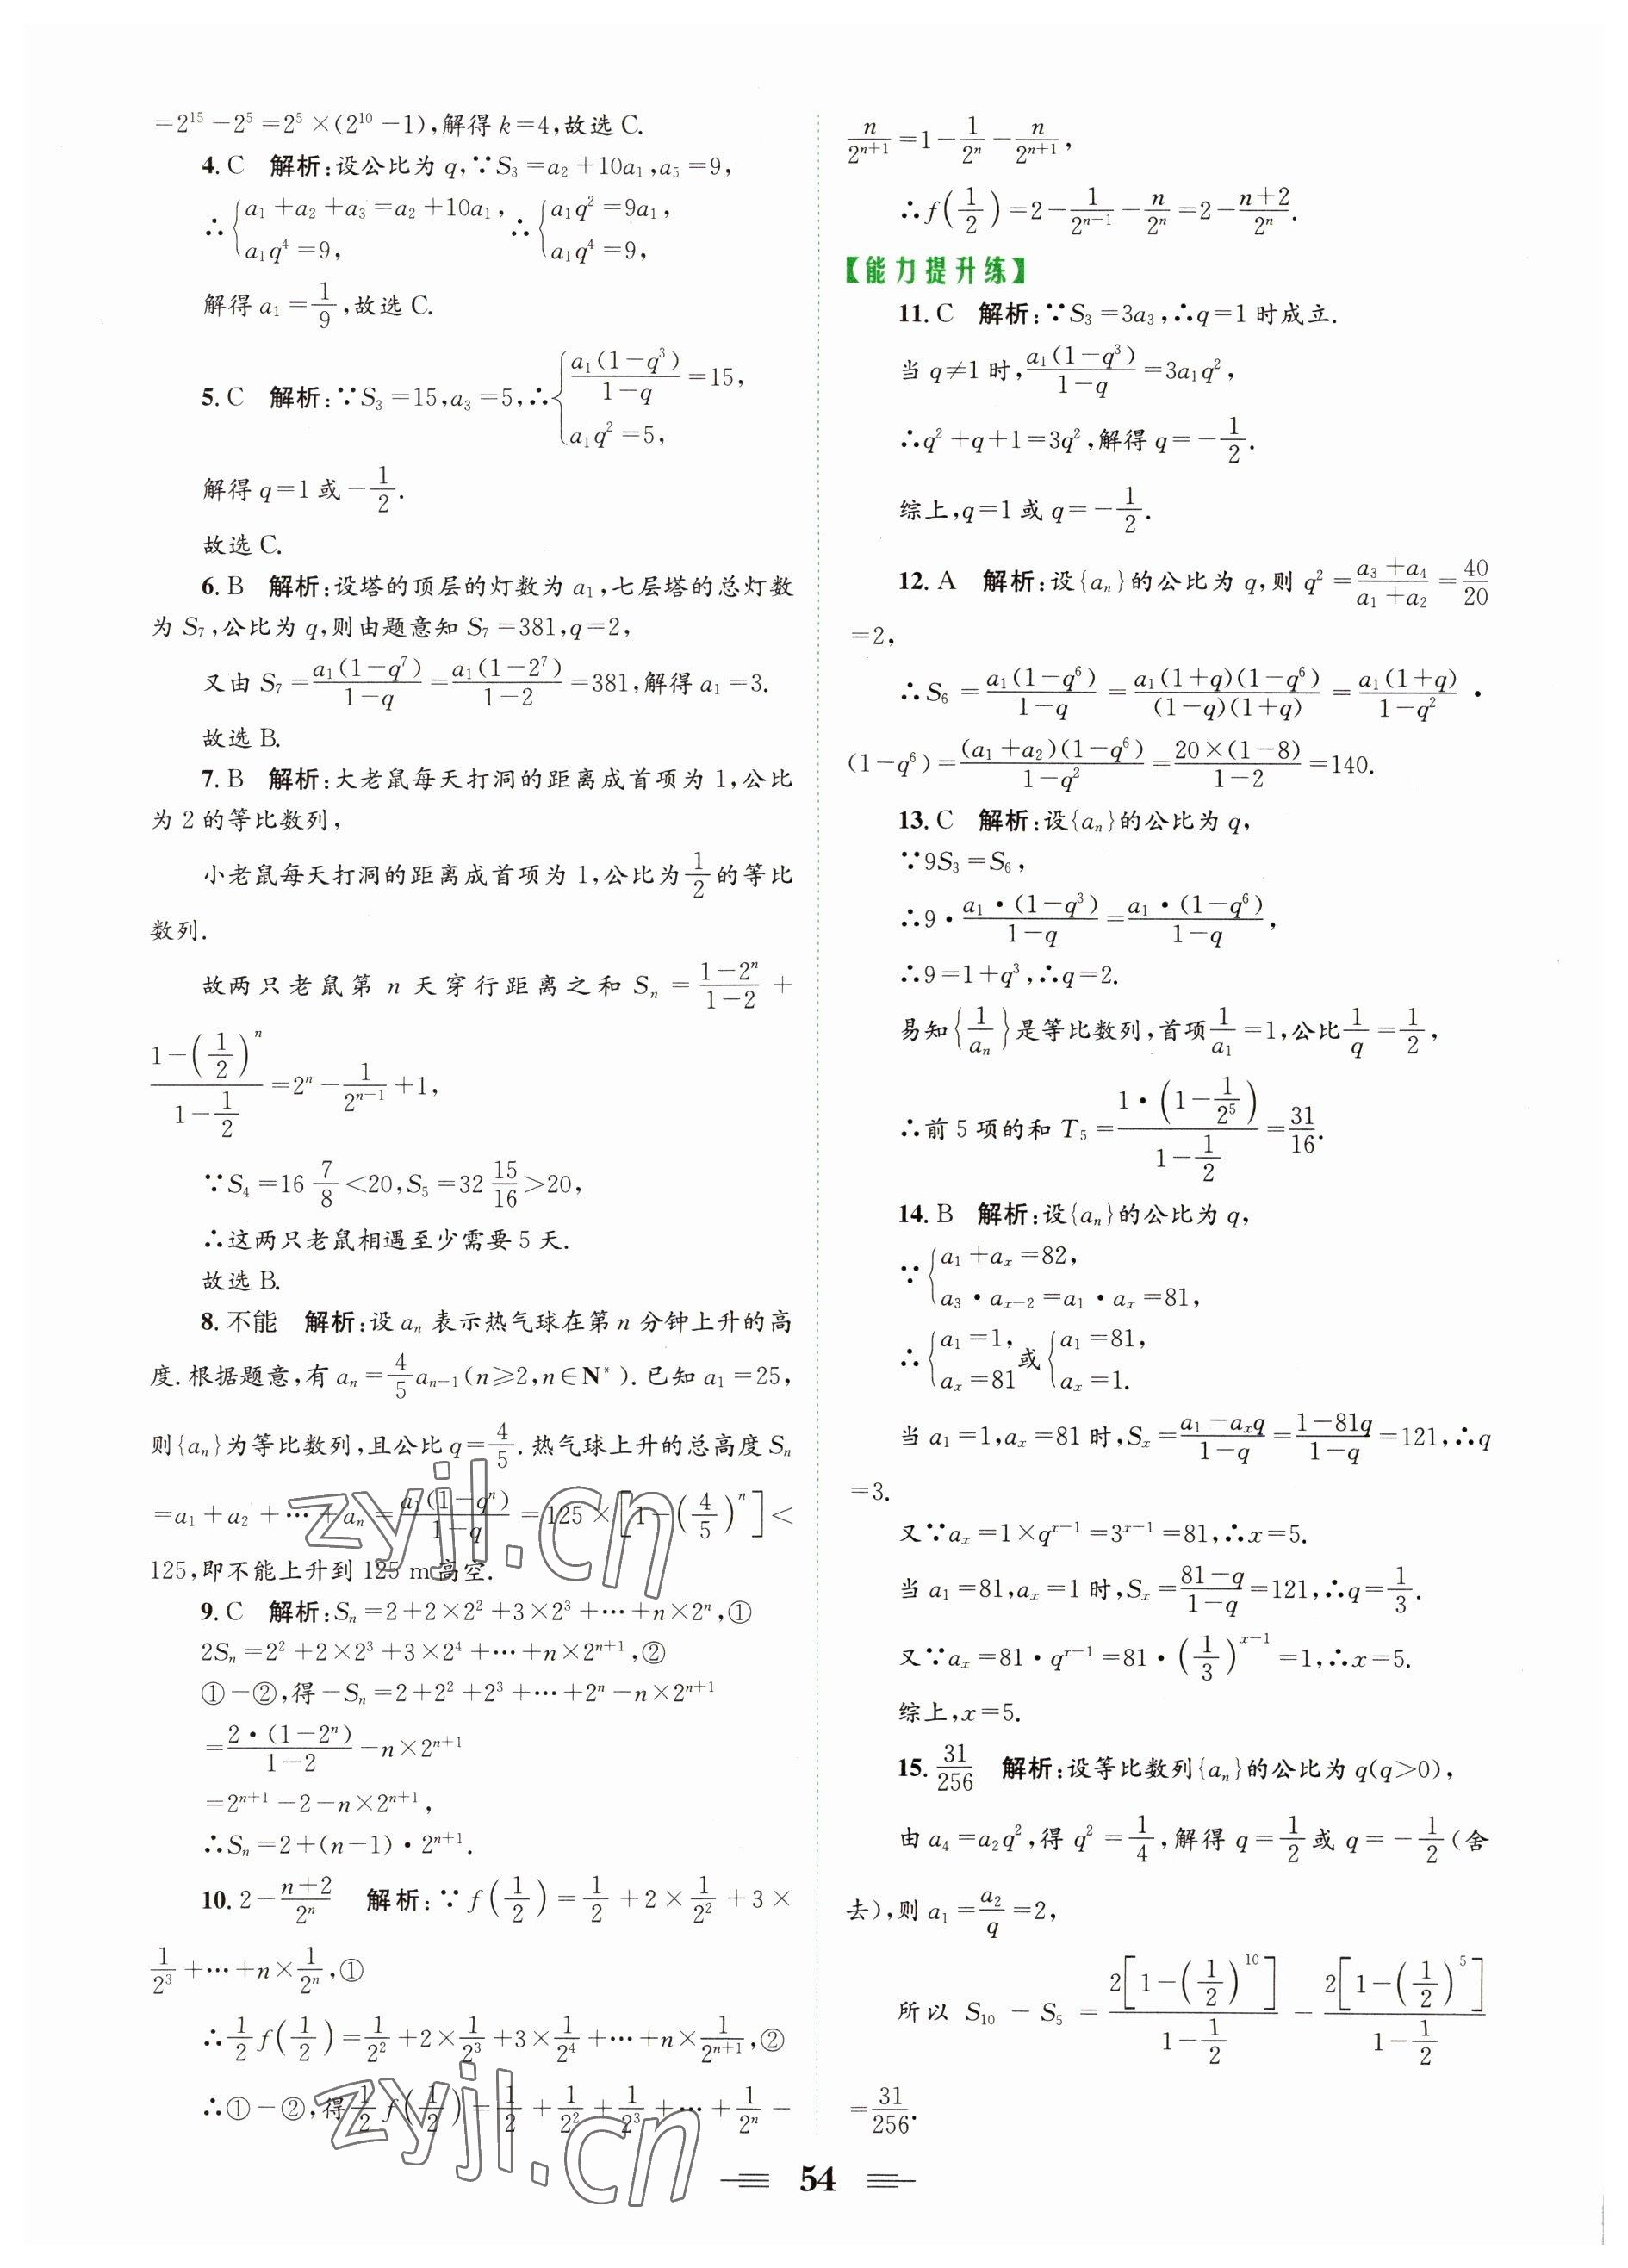 =2¹⁵-2⁵=2⁵×(2¹⁰-1),解得 k=4,故选 C.
4. C 解析:设公比为 q,∵S₃=a₂+10a₁,a₅=9,
∴{a₁+a₂+a₃=a₂+10a₁, a₁q⁴=9, ∴{a₁q²=9a₁, a₁q⁴=9,
解得 a₁=1/9,故选 C.
5. C 解析:∵S₃=15,a₃=5,∴{a₁(1-q³)/(1-q)=15, a₁q²=5,
解得 q=1 或-1/2.
故选 C.
6. B 解析:设塔的顶层的灯数为 a₁,七层塔的总灯数
为 S₇,公比为 q,则由题意知 S₇=381,q=2,
又由 S₇=a₁(1-q⁷)/(1-q)=a₁(1-2⁷)/(1-2)=381,解得 a₁=3.
故选 B.
7. B 解析:大老鼠每天打洞的距离成首项为 1,公比
为 2 的等比数列,
小老鼠每天打洞的距离成首项为 1,公比为1/2的等比
数列.
故两只老鼠第 n 天穿行距离之和 Sₙ=(1-2ⁿ)/(1-2)+
(1-(1/2)ⁿ)/(1-1/2)=2ⁿ-1/2ⁿ⁻¹+1,
∵S₄=16 7/8<20,S₅=32 15/16>20,
∴这两只老鼠相遇至少需要 5 天.
故选 B.
8. 不能 解析:设 aₙ 表示热气球在第 n 分钟上升的高
度.根据题意,有 aₙ=4/5aₙ₋₁(n≥2,n∈N*).已知 a₁=25,
则{aₙ}为等比数列,且公比 q=4/5.热气球上升的总高度 Sₙ
=a₁+a₂+…+aₙ=a₁(1-qⁿ)/(1-q)=125×[1-(4/5)ⁿ]<
125,即不能上升到 125 m 高空.
9. C 解析:Sₙ=2+2×2²+3×2³+…+n×2ⁿ,①
2Sₙ=2²+2×2³+3×2⁴+…+n×2ⁿ⁺¹,②
①-②,得-Sₙ=2+2²+2³+…+2ⁿ-n×2ⁿ⁺¹
=2·(1-2ⁿ)/(1-2)-n×2ⁿ⁺¹
=2ⁿ⁺¹-2-n×2ⁿ⁺¹,
∴Sₙ=2+(n-1)·2ⁿ⁺¹.
10. 2-(n+2)/2ⁿ 解析:∵f(1/2)=1/2+2×1/2²+3×
1/2³+…+n×1/2ⁿ,①
∴1/2f(1/2)=1/2²+2×1/2³+3×1/2⁴+…+n×1/2ⁿ⁺¹,②
∴①-②,得1/2f(1/2)=1/2+1/2²+1/2³+…+1/2ⁿ-
n/2ⁿ⁺¹=1-1/2ⁿ-n/2ⁿ⁺¹,
∴f(1/2)=2-1/2ⁿ⁻¹-n/2ⁿ=2-(n+2)/2ⁿ.
【能力提升练】
11. C 解析:∵S₃=3a₃,∴q=1 时成立.
当 q≠1 时,a₁(1-q³)/(1-q)=3a₁q²,
∴q²+q+1=3q²,解得 q=-1/2.
综上,q=1 或 q=-1/2.
12. A 解析:设{aₙ}的公比为 q,则 q²=(a₃+a₄)/(a₁+a₂)=40/20
=2,
∴S₆=a₁(1-q⁶)/(1-q)=a₁(1+q)(1-q⁶)/(1-q)(1+q)=a₁(1+q)/(1-q²)·
(1-q⁶)=(a₁+a₂)(1-q⁶)/(1-q²)=20×(1-8)/(1-2)=140.
13. C 解析:设{aₙ}的公比为 q,
∵9S₃=S₆,
∴9·a₁·(1-q³)/(1-q)=a₁·(1-q⁶)/(1-q),
∴9=1+q³,∴q=2.
易知{1/aₙ}是等比数列,首项1/a₁=1,公比1/q=1/2,
∴前 5 项的和 T₅=1·(1-1/2⁵)/(1-1/2)=31/16.
14. B 解析:设{aₙ}的公比为 q,
∵{a₁+aₓ=82, a₃·aₓ₋₂=a₁·aₓ=81,
∴{a₁=1, aₓ=81 或{a₁=81, aₓ=1.
当 a₁=1,aₓ=81 时,Sₓ=(a₁-aₓq)/(1-q)=(1-81q)/(1-q)=121,∴q
=3.
又∵aₓ=1×qˣ⁻¹=3ˣ⁻¹=81,∴x=5.
当 a₁=81,aₓ=1 时,Sₓ=(81-q)/(1-q)=121,∴q=1/3.
又∵aₓ=81·qˣ⁻¹=81·(1/3)ˣ⁻¹=1,∴x=5.
综上,x=5.
15. 31/256 解析:设等比数列{aₙ}的公比为 q(q>0),
由 a₄=a₂q²,得 q²=1/4,解得 q=1/2 或 q=-1/2(舍
去),则 a₁=a₂/q=2,
所以 S₁₀-S₅=2[1-(1/2)¹⁰]/(1-1/2)-2[1-(1/2)⁵]/(1-1/2)
=31/256.
54
zyjl.cn
zyjl.cn